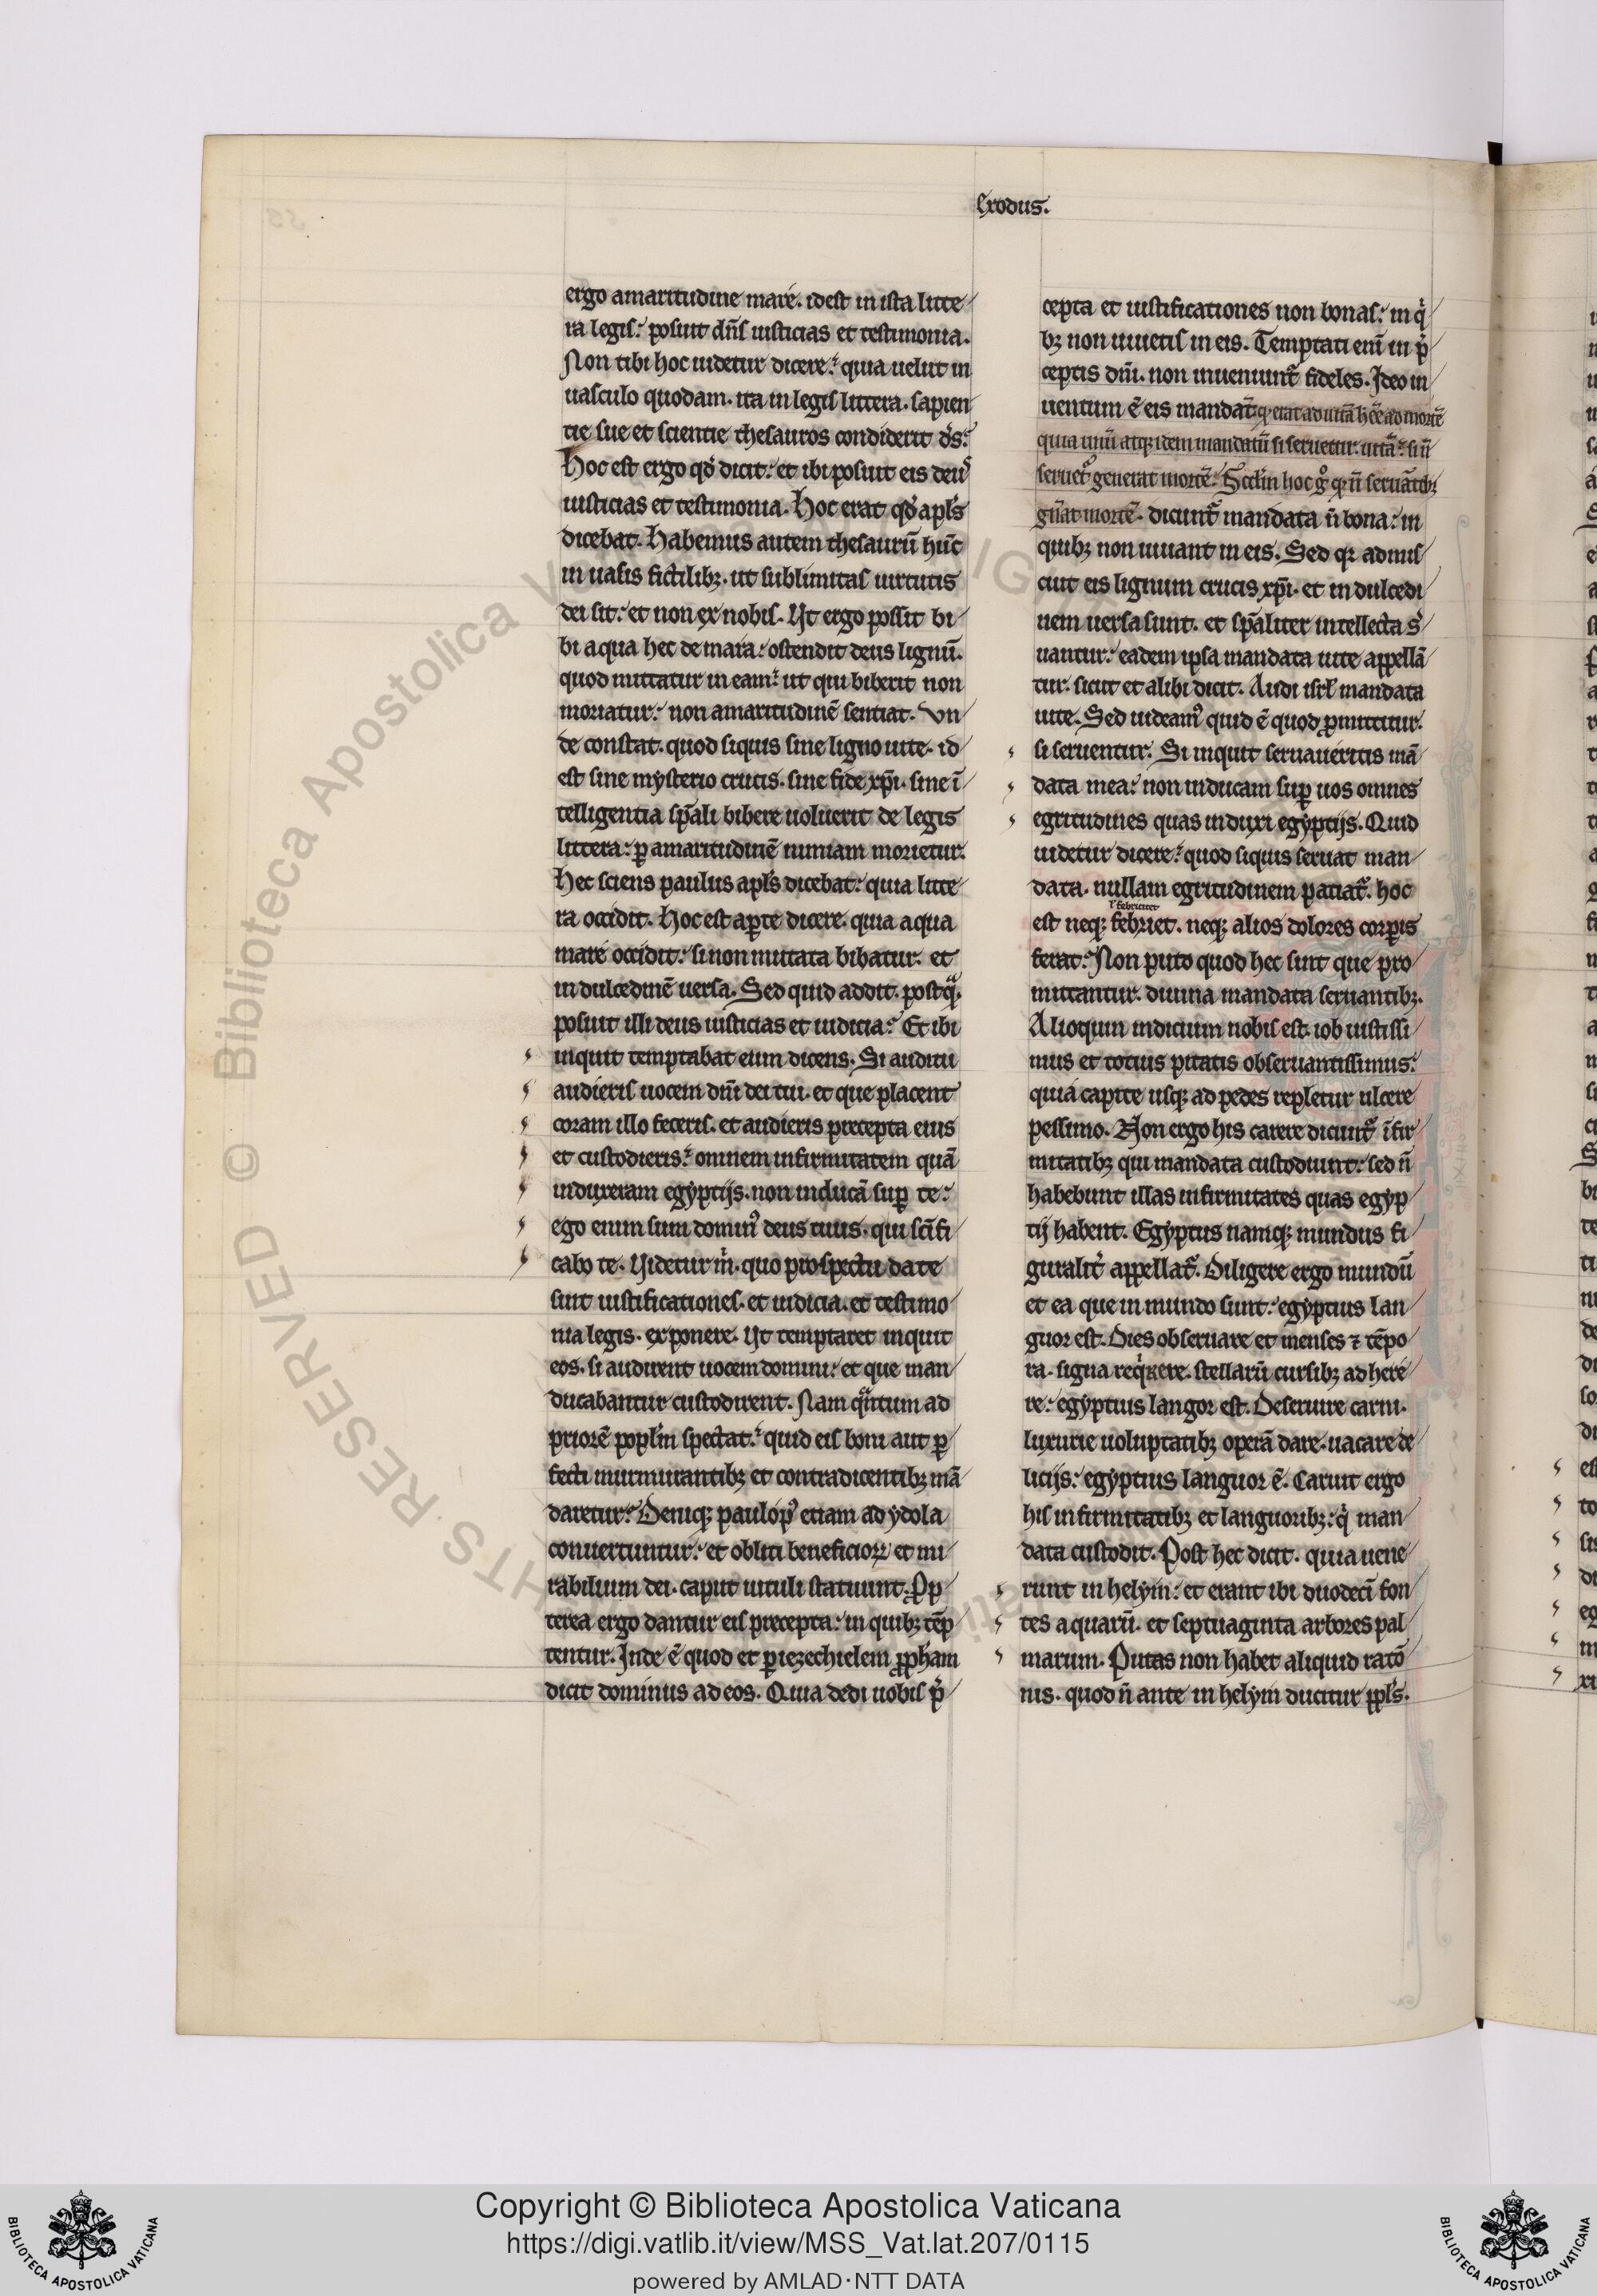 Exodus.
ergo amaritudine mare. idest in ista litte
ra legis: posuit dn̄s iusticias et testimonia.
Non tibi hoc uidetur dicere: quia uelut in
uasculo quodam. ita in legis littera. sapien
tie sue et scientie thesauros condiderit d's:
Hoc est ergo qd' dicit: et ibi posuit eis deus
iusticias et testimonia. Hoc erat qd' apl's
dicebat. Habemus autem thesaurū hūc
in uasis fictilibꝫ. ut sublimitas uirtutis
dei sit: et non ex nobis. Ut ergo possit bi
bi aqua hec de mara: ostendit deus lignū.
quod mittatur in eam: ut qui biberit non
moriatur: non amaritudinē sentiat. Vn
de constat. quod siquis sine ligno uite. id
est sine mysterio crucis. sine fide xp̄i. sine ī
telligentia sp̄ali bibere uoluerit de legis
littera: ꝑ amaritudinē nimiam morietur.
Hec sciens paulus apl's dicebat: quia litte
ra occidit. Hoc est aꝑte dicere. quia aqua
mare occidit: si non mutata bibatur. et
in dulcedinē uersa. Sed quid addit. postqᵃ.
posuit illi deus iusticias et iudicia: Et ibi
inquit temptabat eum dicens. Si auditu
audieris uocem dn̄i dei tui. et que placent
coram illo feceris. et audieris precepta eius
et custodieris: omnem infirmitatem quā
induxeram egyptijs. non inducā suꝑ te:
ego enim sum domin' deus tuus. qui sc̄ifi
cabo te. Uidetur m̄. quo prospectu date
sunt iustificationes. et iudicia. et testimo
nia legis. exponere. Ut temptaret inquit
eos. si audirent uocem domini: et que man
ducabantur custodirent. Nam qᵃntum ad
priorē popl'm spectat: quid eis boni aut ꝑ
fecti murmurantibꝫ et contradicentibꝫ mā
daretur: Deniqꝫ paulop' etiam ad ydola
conuertuntur: et obliti beneficioꝝ et mi
rabilium dei. caput uituli statuunt. Ꝓp
terea ergo dantur eis precepta: in quibꝫ tēp
tentur. Inde ē quod et ꝑ iezechielem ꝓph'am
dicit dominus ad eos. Quia dedi uobis p̄
cepta et iustificationes non bonas: in qⁱ
bꝫ non uiuetis in eis. Temptati enī in p̄
ceptis dn̄i. non inueniunt' fideles. Ideo in
uentum ē eis mandat̄: qꝫ erat ad uitā h' ēē ad mortē
quia unū atqꝫ idem mandatū si seruetur. uitā: si n̄
seruet' generat mortē: Scd'm hoc gᵒ qꝫ n̄ seruātibꝫ
gn̄at mortē. dicunt' mandata n̄ bona: in
quibꝫ non uiuant in eis. Sed qꝫ admis
cuit eis lignum crucis xp̄i. et in dulcedi
nem uersa sunt. et sp̄aliter intellecta s'
uantur: eadem ipsa mandata uite appellā
tur. sicut et alibi dicit. Audi isrl' mandata
uite. Sed uideam' quid ē quod ꝓmittitur.
si seruentur. Si inquit seruaueritis mā
data mea: non inducam suꝑ uos omnes
egritudines quas induxi egyptijs. Quid
uidetur dicere: quod siquis seruat man
data. nullam egritudinem patiat'. hoc
l' febriciter
est neqꝫ febriet. neqꝫ alios dolores corꝑis
ferat: Non puto quod hec sint que pro
mittantur. diuina mandata seruantibꝫ.
Alioquin indicium nobis est iob iustissi
mus et totius pitatis obseruantissimus:
quia capite usqꝫ ad pedes repletur ulcere
pessimo. Non ergo his carere dicunt' īfir
mitatibꝫ qui mandata custodiunt: sed n̄
habebunt illas infirmitates quas egyp
tij habent. Egyptus namqꝫ mundus fi
guralit' appellat'. Diligere ergo mundū
et ea que in mundo sunt: egyptius lan
guor est. Dies obseruare et menses ⁊ tēpo
ra. signa reqⁱrere. stellarū cursibꝫ adhere
re: egyptius langor est. Deseruire carni.
luxurie uoluptatibꝫ operā dare. uacare de
licijs: egyptius languor ē. Caruit ergo
his infirmitatibꝫ et languoribꝫ: qⁱ man
data custodit. Post hec dicit. quia uene
runt in helym: et erant ibi duodecī fon
tes aquarū. et septuaginta arbores pal
marum. Putas non habet aliquid ratō
nis. quod n̄ ante in helym ducitur ppl's.
Copyright © Biblioteca Apostolica Vaticana
https://digi.vatlib.it/view/MSS_Vat.lat.207/0115
powered by AMLAD·NTT DATA
BIBLIOTECA APOSTOLICA VATICANA
BIBLIOTECA APOSTOLICA VATICANA